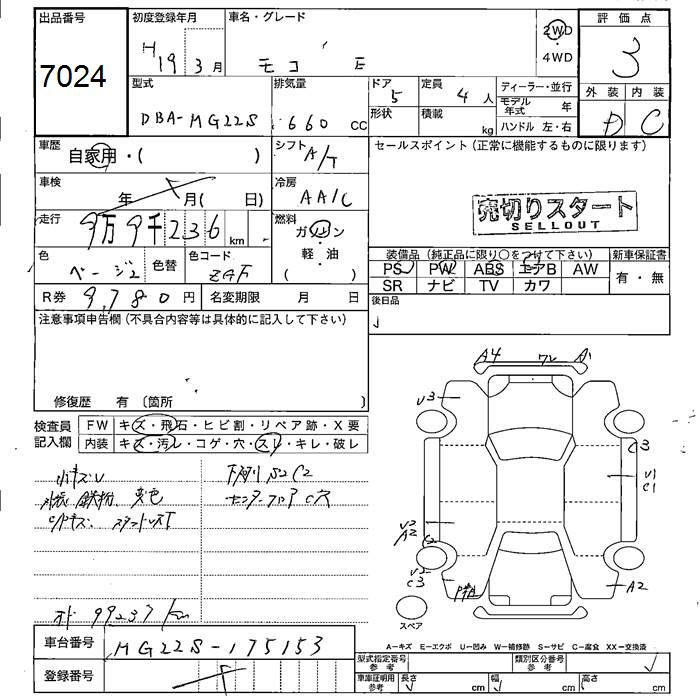 出品番号
7024
初度登録年月
H 19 3 月
車名・グレード
モコ E
2WD
4WD
評価点
3
外装 内装
D C
型式
DBA-MG22S
排気量
660 cc
ドア 5
形状
定員 4 人
積載 kg
ディーラー・並行
モデル年式 年
ハンドル 左・右
車歴 自家用・( )
シフト A/T
セールスポイント(正常に機能するものに限ります)
売切りスタート
SELLOUT
車検 年 月( 日)
冷房 AA/C
走行 9万9千236 km
燃料 ガソリン・軽・油( )
色 ベージュ 色替
色コード ZGF
装備品(純正品に限り○をつけて下さい)
PS PW ABS エアB AW
SR ナビ TV カワ
新車保証書
有・無
R券 9,780円
名変期限 月 日
後日品
注意事項申告欄(不具合内容等は具体的に記入して下さい)
修復歴 有〔箇所 〕
検査員記入欄
FW キズ・飛石・ヒビ割・リペア跡・X要
内装 キズ・汚レ・コゲ・穴・スレ・キレ・破レ
小キズU
下廻りS2C2
鉄粉
センターフロアC穴
99237 km
A4 ワレ A1
U3
C3
U1
C1
U2
A2
U2
C3
A2
スペア
A-キズ E-エクボ U-凹み W-補修跡 S-サビ C-腐食 XX-交換済
車台番号 MG22S-175153
登録番号
型式指定番号参考
類別区分番号参考
車庫証明用参考
長さ cm 幅 cm 高さ cm